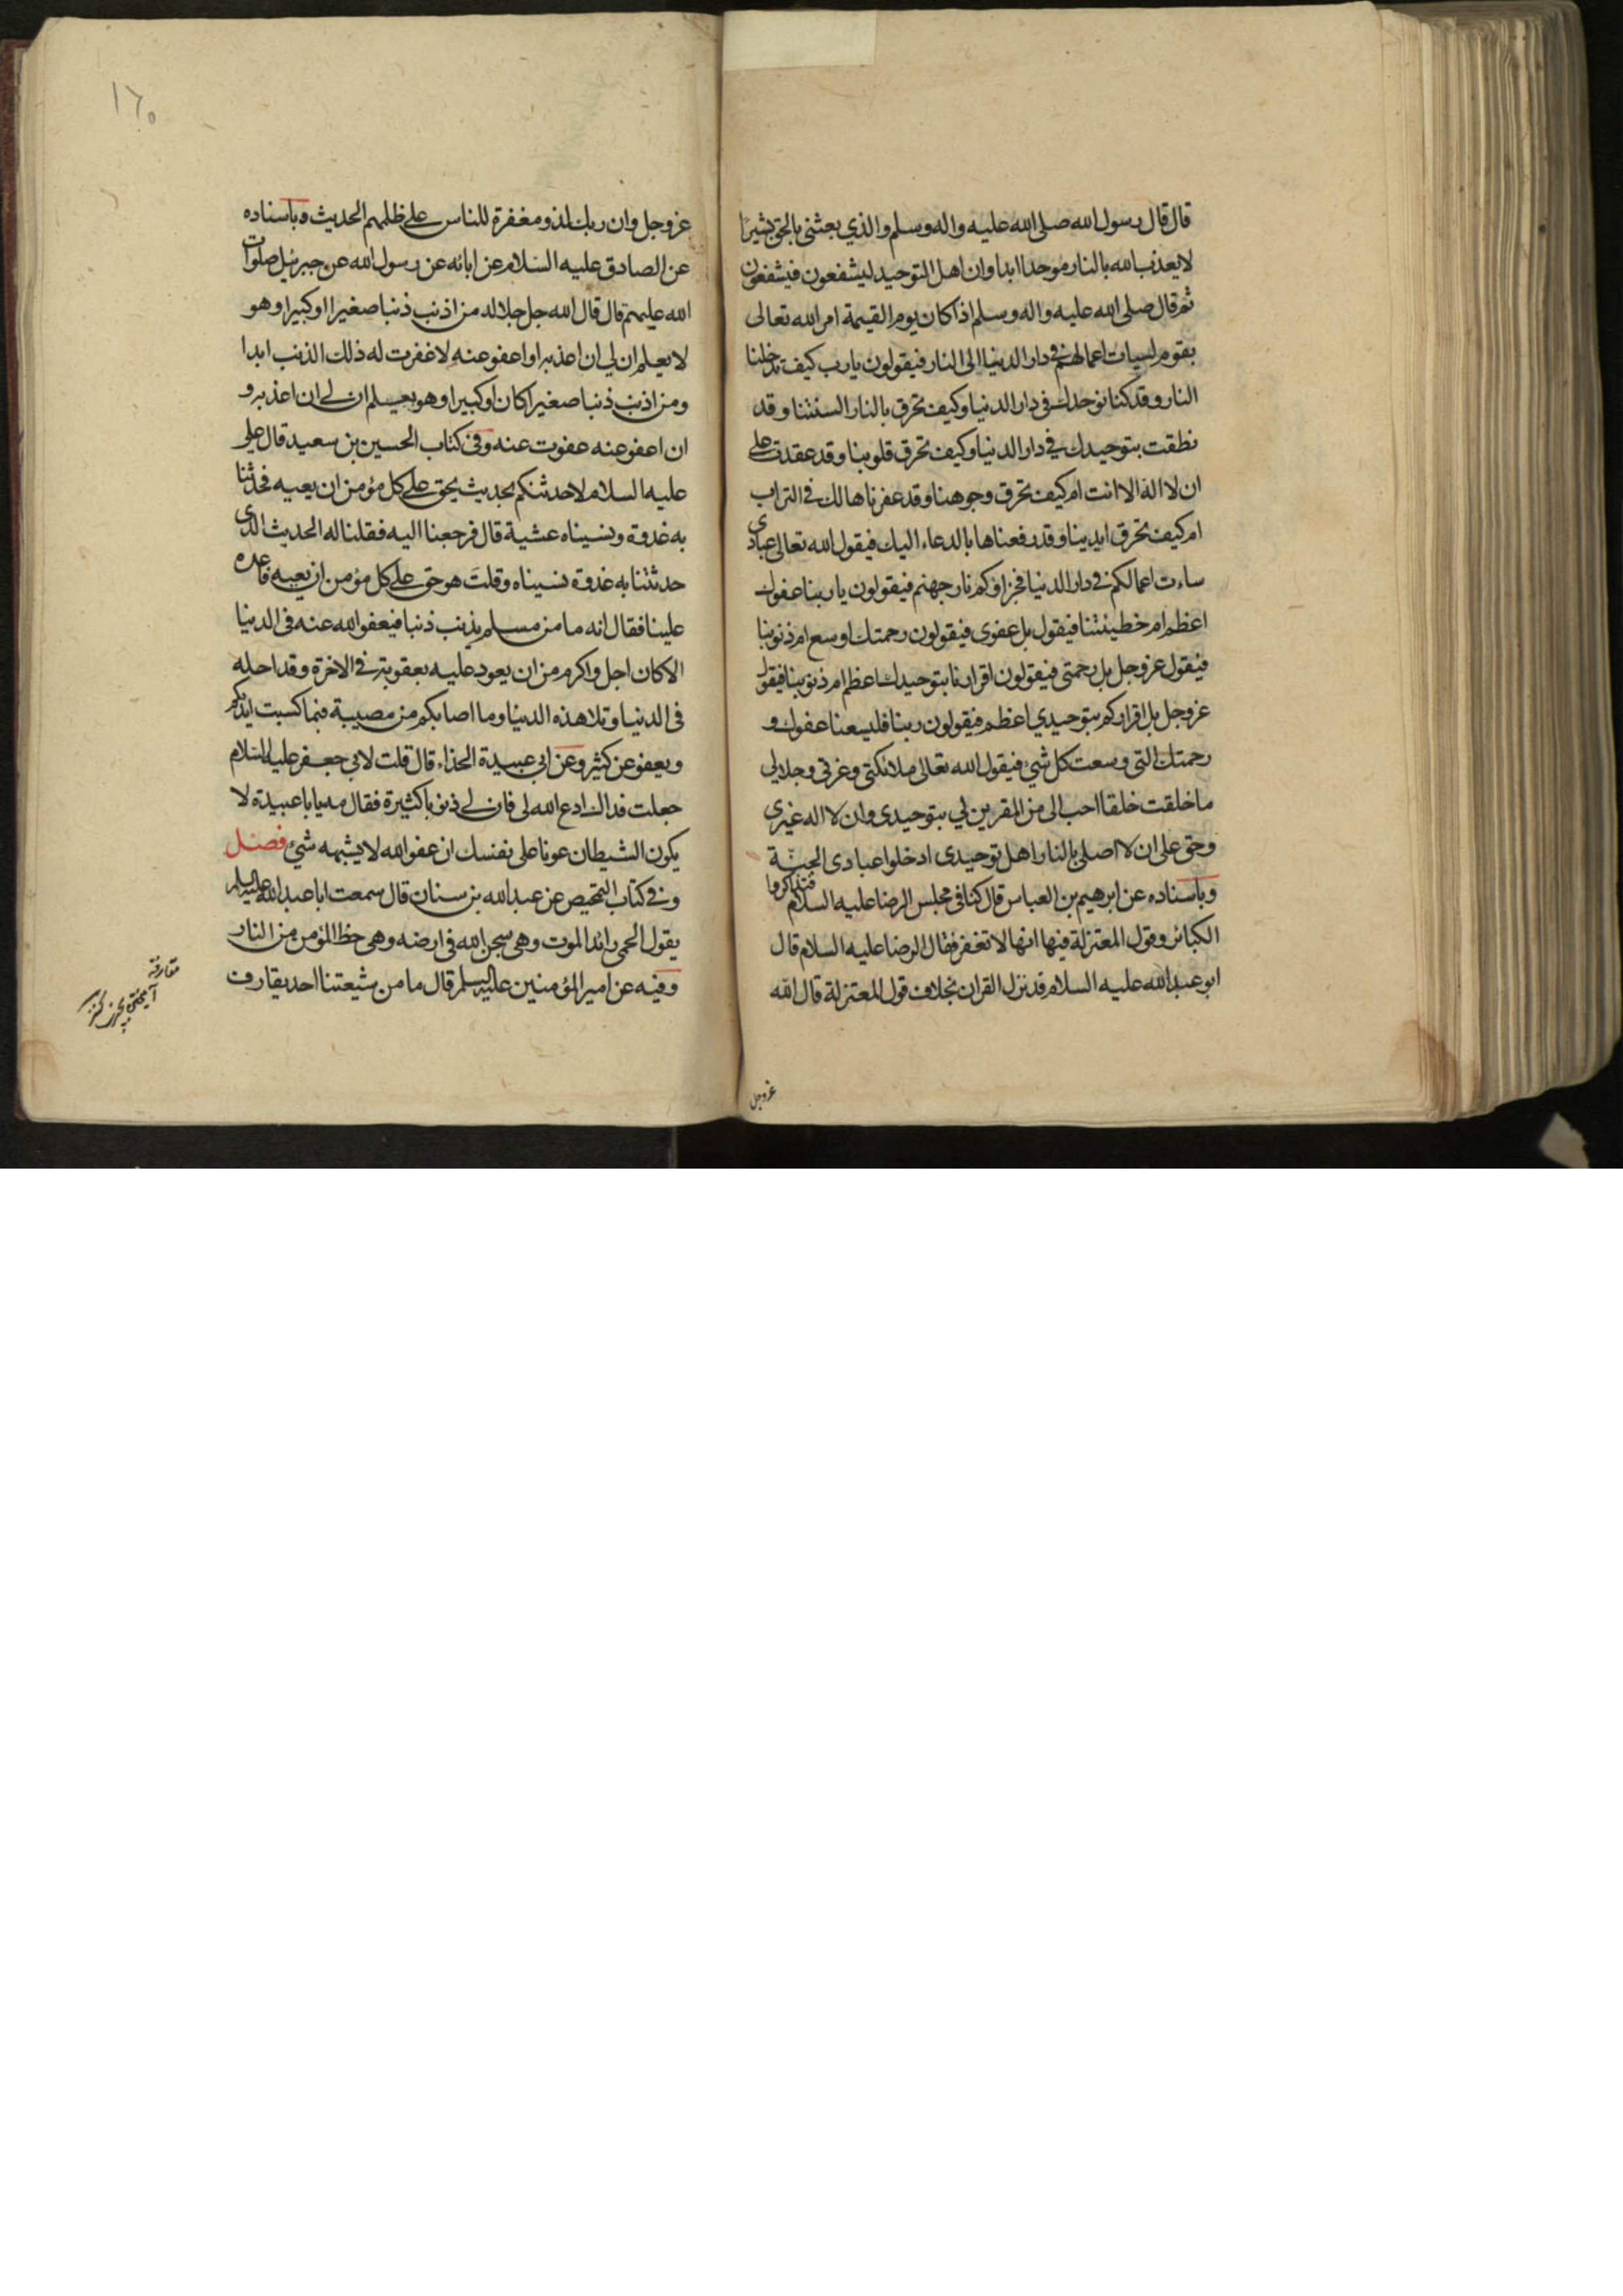 قال قال رسول الله صلى الله عليه واله وسلم والذي بعثنى بالحق بشيرا
لا يعذب الله بالنار موحدا ابدا وان اهل التوحيد ليشفعون فيشفعون
ثم قال صلى الله عليه واله وسلم اذا كان يوم القيمة امر الله تعالى
بقوم لسيات اعمالهم في دار الدنيا الى النار فيقولون يا رب كيف تدخلنا
النار وقد كنا نوحدك في دار الدنيا وكيف تحرق بالنار السنتنا وقد
نطقت بتوحيدك في دار الدنيا وكيف تحرق قلوبنا وقد عقدت على
ان لا اله الا انت ام كيف تحرق وجوهنا وقد عفرناها لك في التراب
ام كيف تحرق ايدينا وقد رفعناها بالدعاء اليك فيقول الله تعالى عبادى
ساءت اعمالكم في دار الدنيا فجزاؤكم نار جهنم فيقولون يا ربنا عفوك
اعظم ام خطيئتنا فيقول بل عفوى فيقولون رحمتك اوسع ام ذنوبنا
فيقول عز وجل بل رحمتى فيقولون اقرارنا بتوحيدك اعظم ام ذنوبنا فيقول
عز وجل بل اقراركم بتوحيدي اعظم فيقولون ربنا فليسعنا عفوك و
رحمتك التي وسعت كل شئ فيقول الله تعالى ملائكتى وعزتى وجلالي
ما خلقت خلقا احب الى من المقرين لي بتوحيدى وان لا اله غيرى
وحق على ان لا اصلى بالنار اهل توحيدى ادخلوا عبادى الجنة
وباسناده عن ابرهيم بن العباس قال كنا في مجلس الرضا عليه السلام فتذاكروا
الكبائر وقول المعتزلة فيها انها لا تغفر فقال الرضا عليه السلام قال
ابو عبد الله عليه السلام قد نزل القران بخلاف قول المعتزلة قال الله
عز وجل
١٦٥
عز وجل وان ربك لذو مغفرة للناس على ظلمهم الحديث وباسناده
عن الصادق عليه السلام عن ابائه عن رسول الله عن جبرئيل صلوات
الله عليهم قال قال الله جل جلاله من اذنب ذنبا صغيرا او كبيرا وهو
لا يعلم ان لي ان اعذبه او اعفو عنه لا غفرت له ذلك الذنب ابدا
ومن اذنب ذنبا صغيرا كان او كبيرا وهو يعلم ان لى ان اعذبه و
ان اعفو عنه عفوت عنه وفي كتاب الحسين بن سعيد قال على
عليه السلام لاحدثنكم بحديث يحق على كل مؤمن ان يعيه فحدثنا
به غدوة ونسيناه عشية قال فرجعنا اليه فقلنا له الحديث الذى
حدثتنا به غدوة نسيناه وقلت هو حق على كل مؤمن ان يعيه فاعده
علينا فقال انه ما من مسلم يذنب ذنبا فيعفو الله عنه في الدنيا
الا كان اجل واكرم من ان يعود عليه بعقوبته في الاخرة وقد احله
في الدنيا وتلا هذه الدنيا وما اصابكم من مصيبة فبما كسبت ايديكم
ويعفو عن كثير وعن ابي عبيدة الحذاء قال قلت لابي جعفر عليه السلام
جعلت فداك ادع الله لى فان لى ذنوبا كثيرة فقال مه يا با عبيدة لا
يكون الشيطان عونا على نفسك ان عفو الله لا يشبهه شئ فصل
وفي كتاب التمحيص عن عبد الله بن سنان قال سمعت ابا عبد الله عليه السلام
يقول الحمى رائد الموت وهى سجن الله في ارضه وهى حظ المؤمن من النار
وفيه عن امير المؤمنين عليه السلم قال ما من شيعتنا احد يقارف
مقارفه